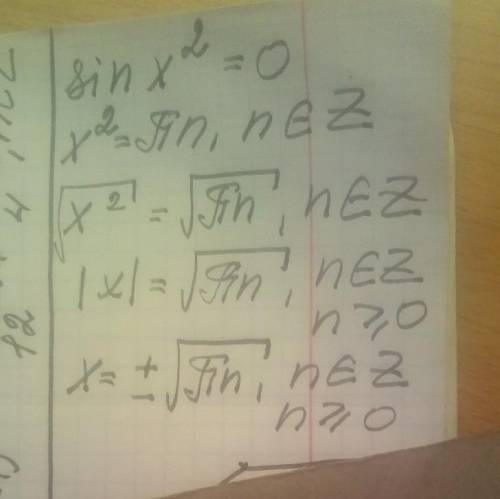 sin x² = 0
x² = πn, n ∈ Z
√x² = √πn, n ∈ Z
|x| = √πn, n ∈ Z
n ⩾ 0
x = ± √πn, n ∈ Z
n ⩾ 0
12